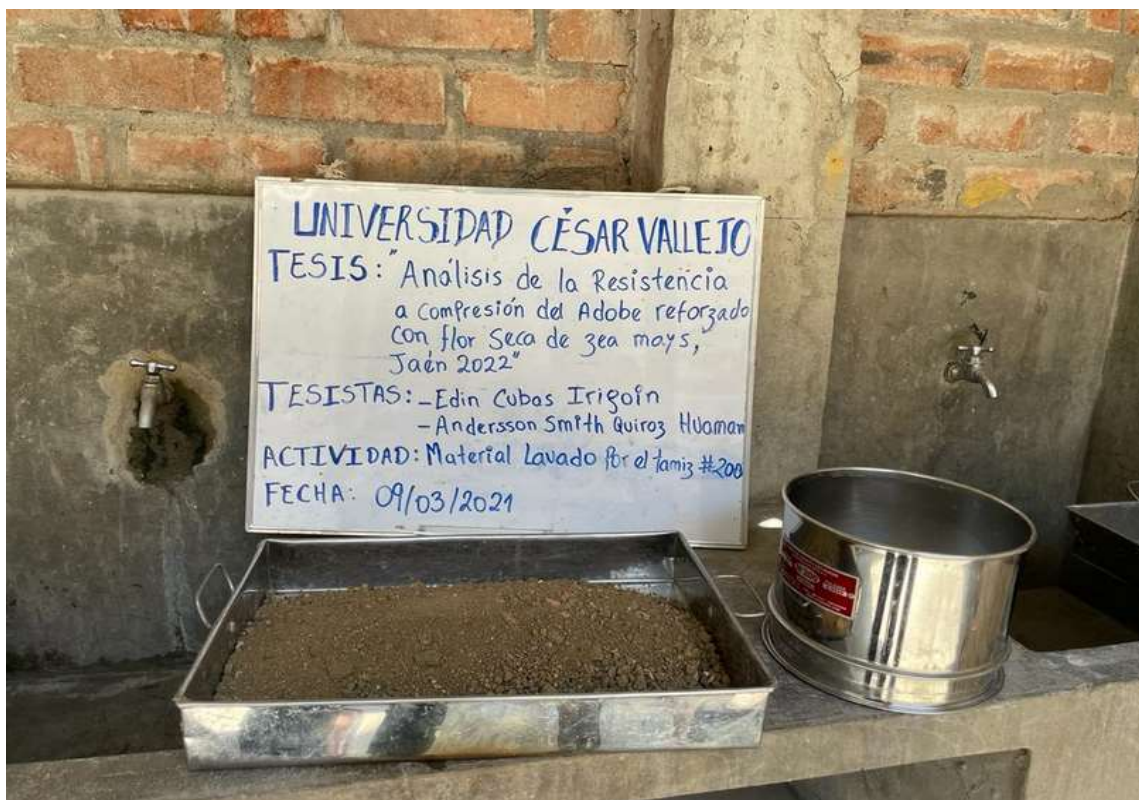 UNIVERSIDAD CÉSAR VALLEJO
TESIS: "Análisis de la Resistencia
a compresión del Adobe reforzado
con flor Seca de zea mays,
Jaén 2022"
TESISTAS: - Edin Cubas Irigoín
- Andersson Smith Quiroz Huaman
ACTIVIDAD: Material Lavado Por el tamiz #200
FECHA: 09/03/2021